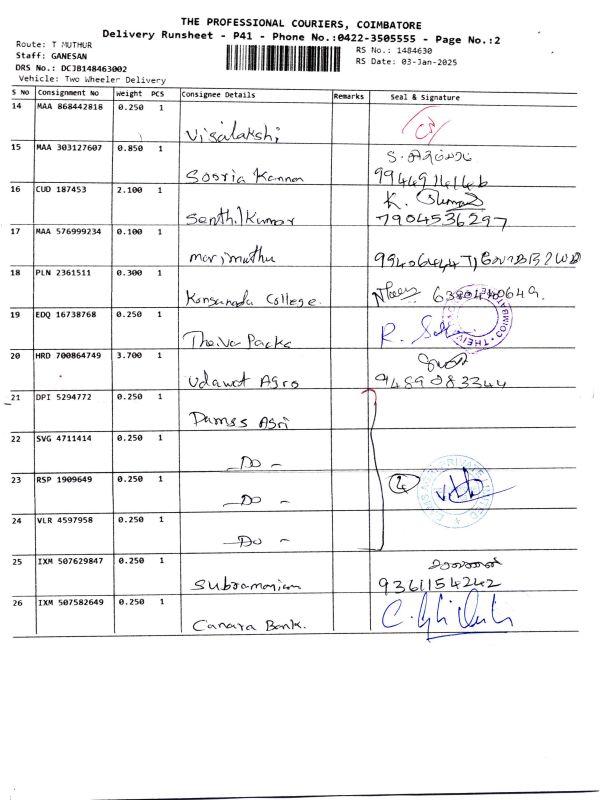 THE PROFESSIONAL COURIERS, COIMBATORE
Delivery Runsheet - P41 - Phone No.:0422-3505555 - Page No.:2
Route: T MUTHUR
Staff: GANESAN
DRS No.: DCJB148463002
Vehicle: Two Wheeler Delivery
RS No.: 1484630
RS Date: 03-Jan-2025
S No Consignment No Weight PCS Consignee Details Remarks Seal & Signature
14 MAA 868442818 0.250 1
Visalakshi
15 MAA 303127607 0.850 1
Sooria Kannan
16 CUD 187453 2.100 1
Senthilkumar 7904536297
17 MAA 576999234 0.100 1
marimuthu
18 PLN 2361511 0.300 1
Kongunadu College.
19 EDQ 16738768 0.250 1
Theiva Packs
20 HRD 700864749 3.700 1
Udawat Agro 9489083344
21 DPI 5294772 0.250 1
Damss Agri
22 SVG 4711414 0.250 1
- Do -
23 RSP 1909649 0.250 1
- Do - 4
24 VLR 4597958 0.250 1
- Do -
25 IXM 507629847 0.250 1
Subramaniam 9361154242
26 IXM 507582649 0.250 1
Canara Bank.